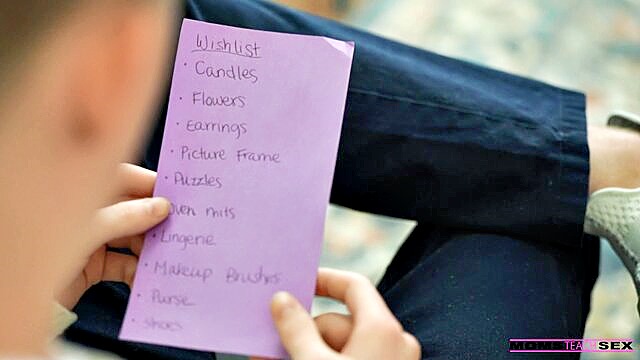 Wishlist
• Candles
• Flowers
• Earrings
• Picture Frame
• Puzzles
oven mits
• Lingerie
• Makeup Brushes
• Purse
• Shoes
MOMS TEACH SEX